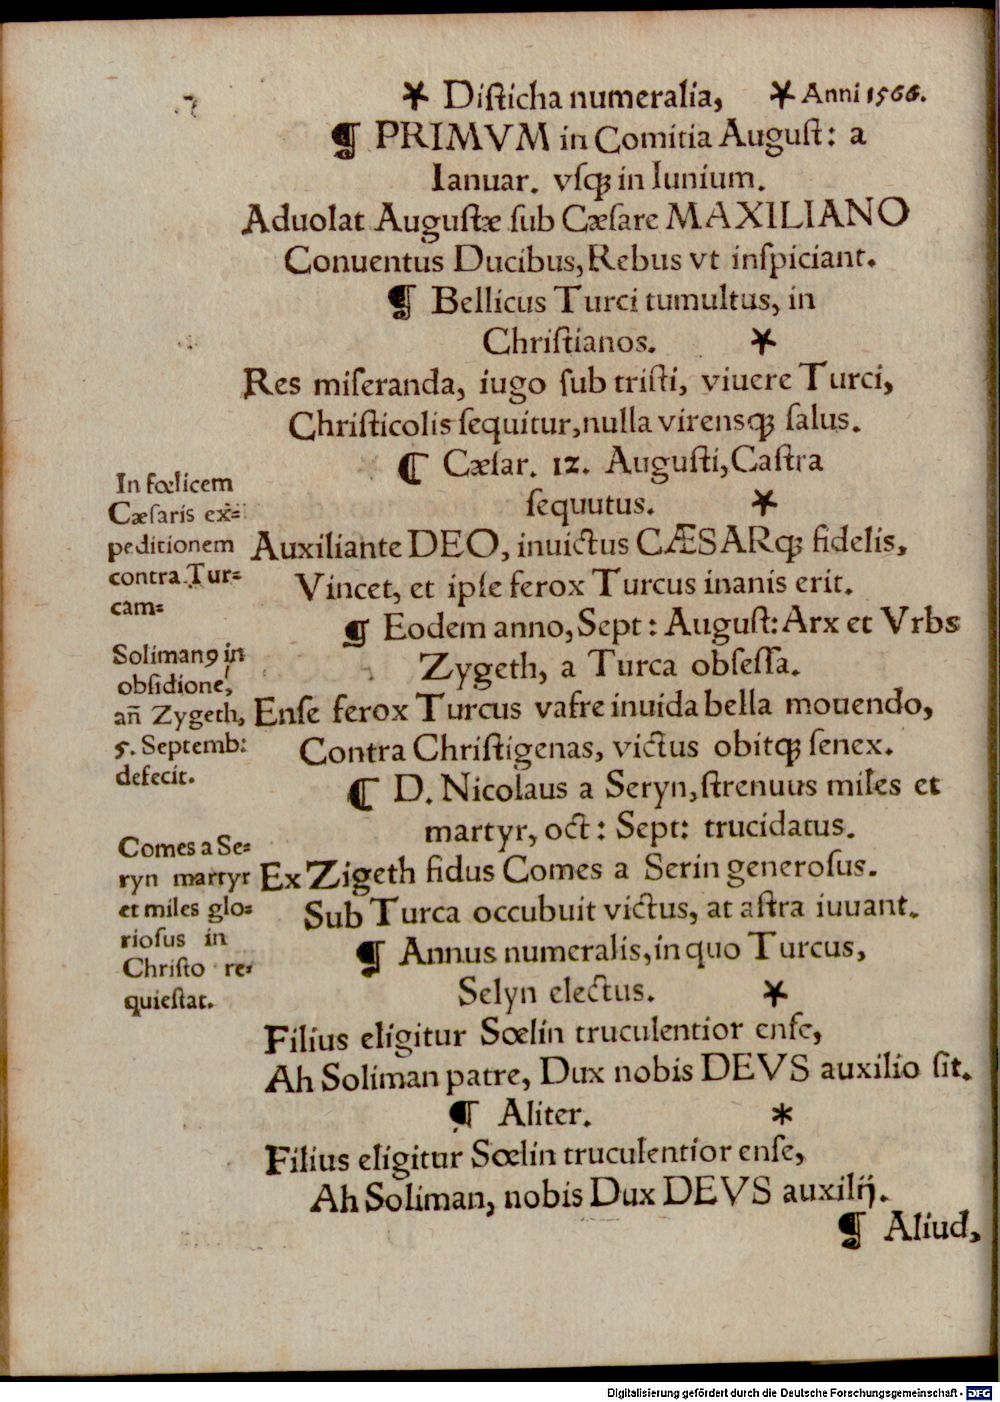 * Diſticha numeralia, * Anni 1566.
¶ PRIMVM in Comitia Auguſt: a
Ianuar. vſqꝫ in Iunium.
Aduolat Auguſtæ ſub Cæſare MAXILIANO
Conuentus Ducibus, Rebus vt inſpiciant.
¶ Bellicus Turci tumultus, in
Chriſtianos. *
Res miſeranda, iugo ſub triſti, viuere Turci,
Chriſticolis ſequitur, nulla virensqꝫ ſalus.
¶ Cæſar. 12. Auguſti, Caſtra
ſequutus. *
In fœlicem
Cæſaris ex⸗
peditionem
contra Tur⸗
cam⸗
Auxiliante DEO, inuictus CÆSARqꝫ fidelis,
Vincet, et ipſe ferox Turcus inanis erit.
¶ Eodem anno, Sept: Auguſt: Arx et Vrbs
Zygeth, a Turca obſeſſa.
Solimanꝯ in
obſidione,
añ Zygeth,
5. Septemb:
defecit.
Enſe ferox Turcus vafre inuida bella mouendo,
Contra Chriſtigenas, victus obitqꝫ ſenex.
¶ D. Nicolaus a Seryn, ſtrenuus miles et
martyr, oct: Sept: trucidatus.
Comes a Se⸗
ryn martyr
et miles glo⸗
rioſus in
Chriſto re⸗
quieſtat.
Ex Zigeth fidus Comes a Serin generoſus.
Sub Turca occubuit victus, at aſtra iuuant.
¶ Annus numeralis, in quo Turcus,
Selyn electus. *
Filius eligitur Sœlin truculentior enſe,
Ah Soliman patre, Dux nobis DEVS auxilio ſit.
¶ Aliter. *
Filius eligitur Sœlin truculentior enſe,
Ah Soliman, nobis Dux DEVS auxilij.
¶ Aliud,
Digitalisierung gefördert durch die Deutsche Forschungsgemeinschaft - DFG